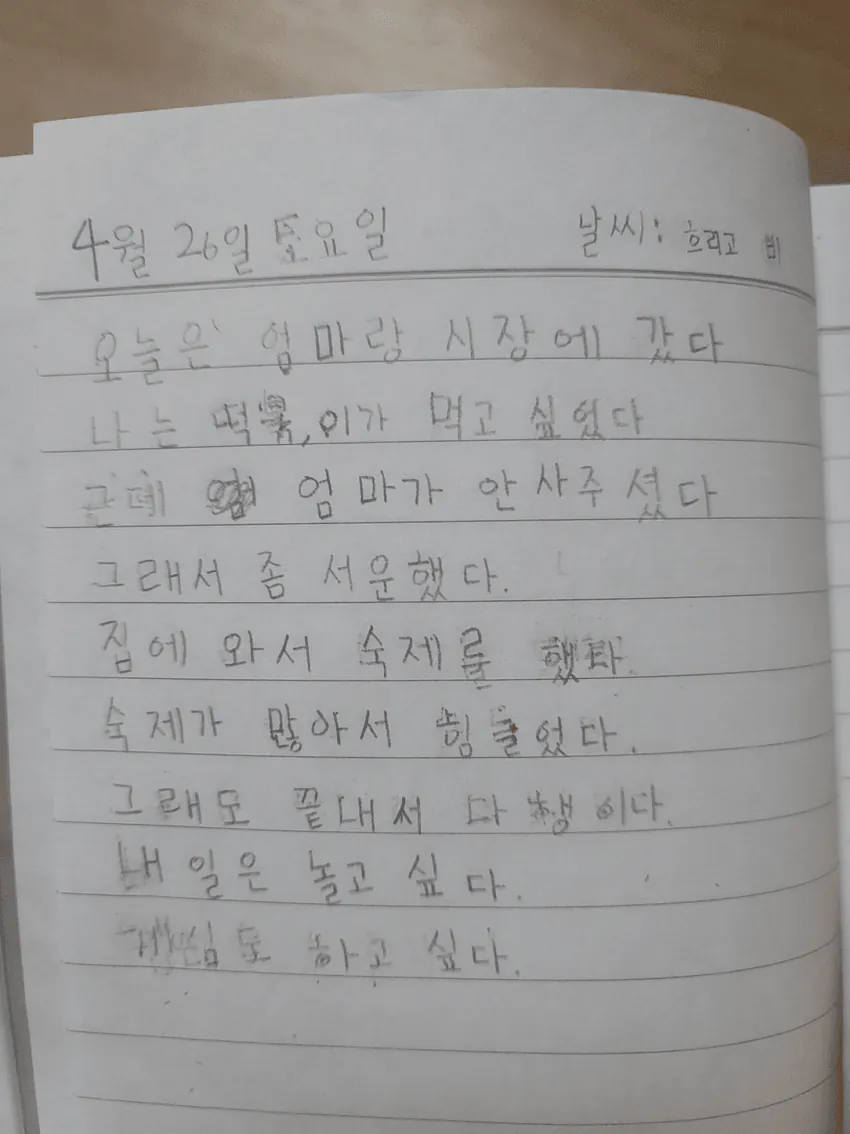 4월 26일 토요일 날씨: 흐리고 비
오늘은 엄마랑 시장에 갔다
나는 먹고 싶었다
근데 엄마가 안사주셨다
그래서 좀 서운했다.
집에 와서 숙제를 했다.
숙제가 많아서 힘들었다.
그래도 끝내서 다행이다.
내일은 놀고 싶다.
하고 싶다.